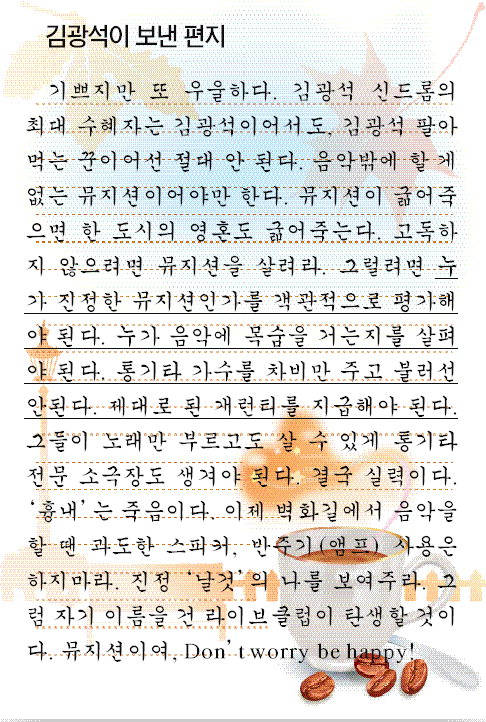 김광석이 보낸 편지
기쁘지만 또 우울하다. 김광석 신드롬의
최대 수혜자는 김광석이어서도, 김광석 팔아
먹는 꾼이어선 절대 안 된다. 음악밖에 할 게
없는 뮤지션이어야만 한다. 뮤지션이 굶어죽
으면 한 도시의 영혼도 굶어죽는다. 고독하
지 않으려면 뮤지션을 살려라. 그럴려면 누
가 진정한 뮤지션인가를 객관적으로 평가해
야 된다. 누가 음악에 목숨을 거는지를 살펴
야 된다. 통기타 가수를 차비만 주고 불러선
안된다. 제대로 된 개런티를 지급해야 된다.
그들이 노래만 부르고도 살 수 있게 통기타
전문 소극장도 생겨야 된다. 결국 실력이다.
‘흉내’는 죽음이다. 이제 벽화길에서 음악을
할 땐 과도한 스피커, 반주기(앰프) 사용은
하지마라. 진정 ‘날것’의 나를 보여주라. 그
럼 자기 이름을 건 라이브클럽이 탄생할 것이
다. 뮤지션이여, Don’t worry be happy!